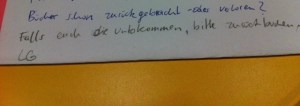 Bücher schon zurückgebracht - oder verloren?
Falls noch die vorbekommen, bitte zurückbuchen.
LG